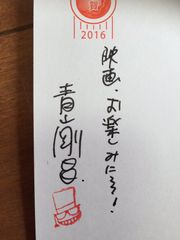 賀
2016
映画、お楽しみにネ!
青山剛昌.